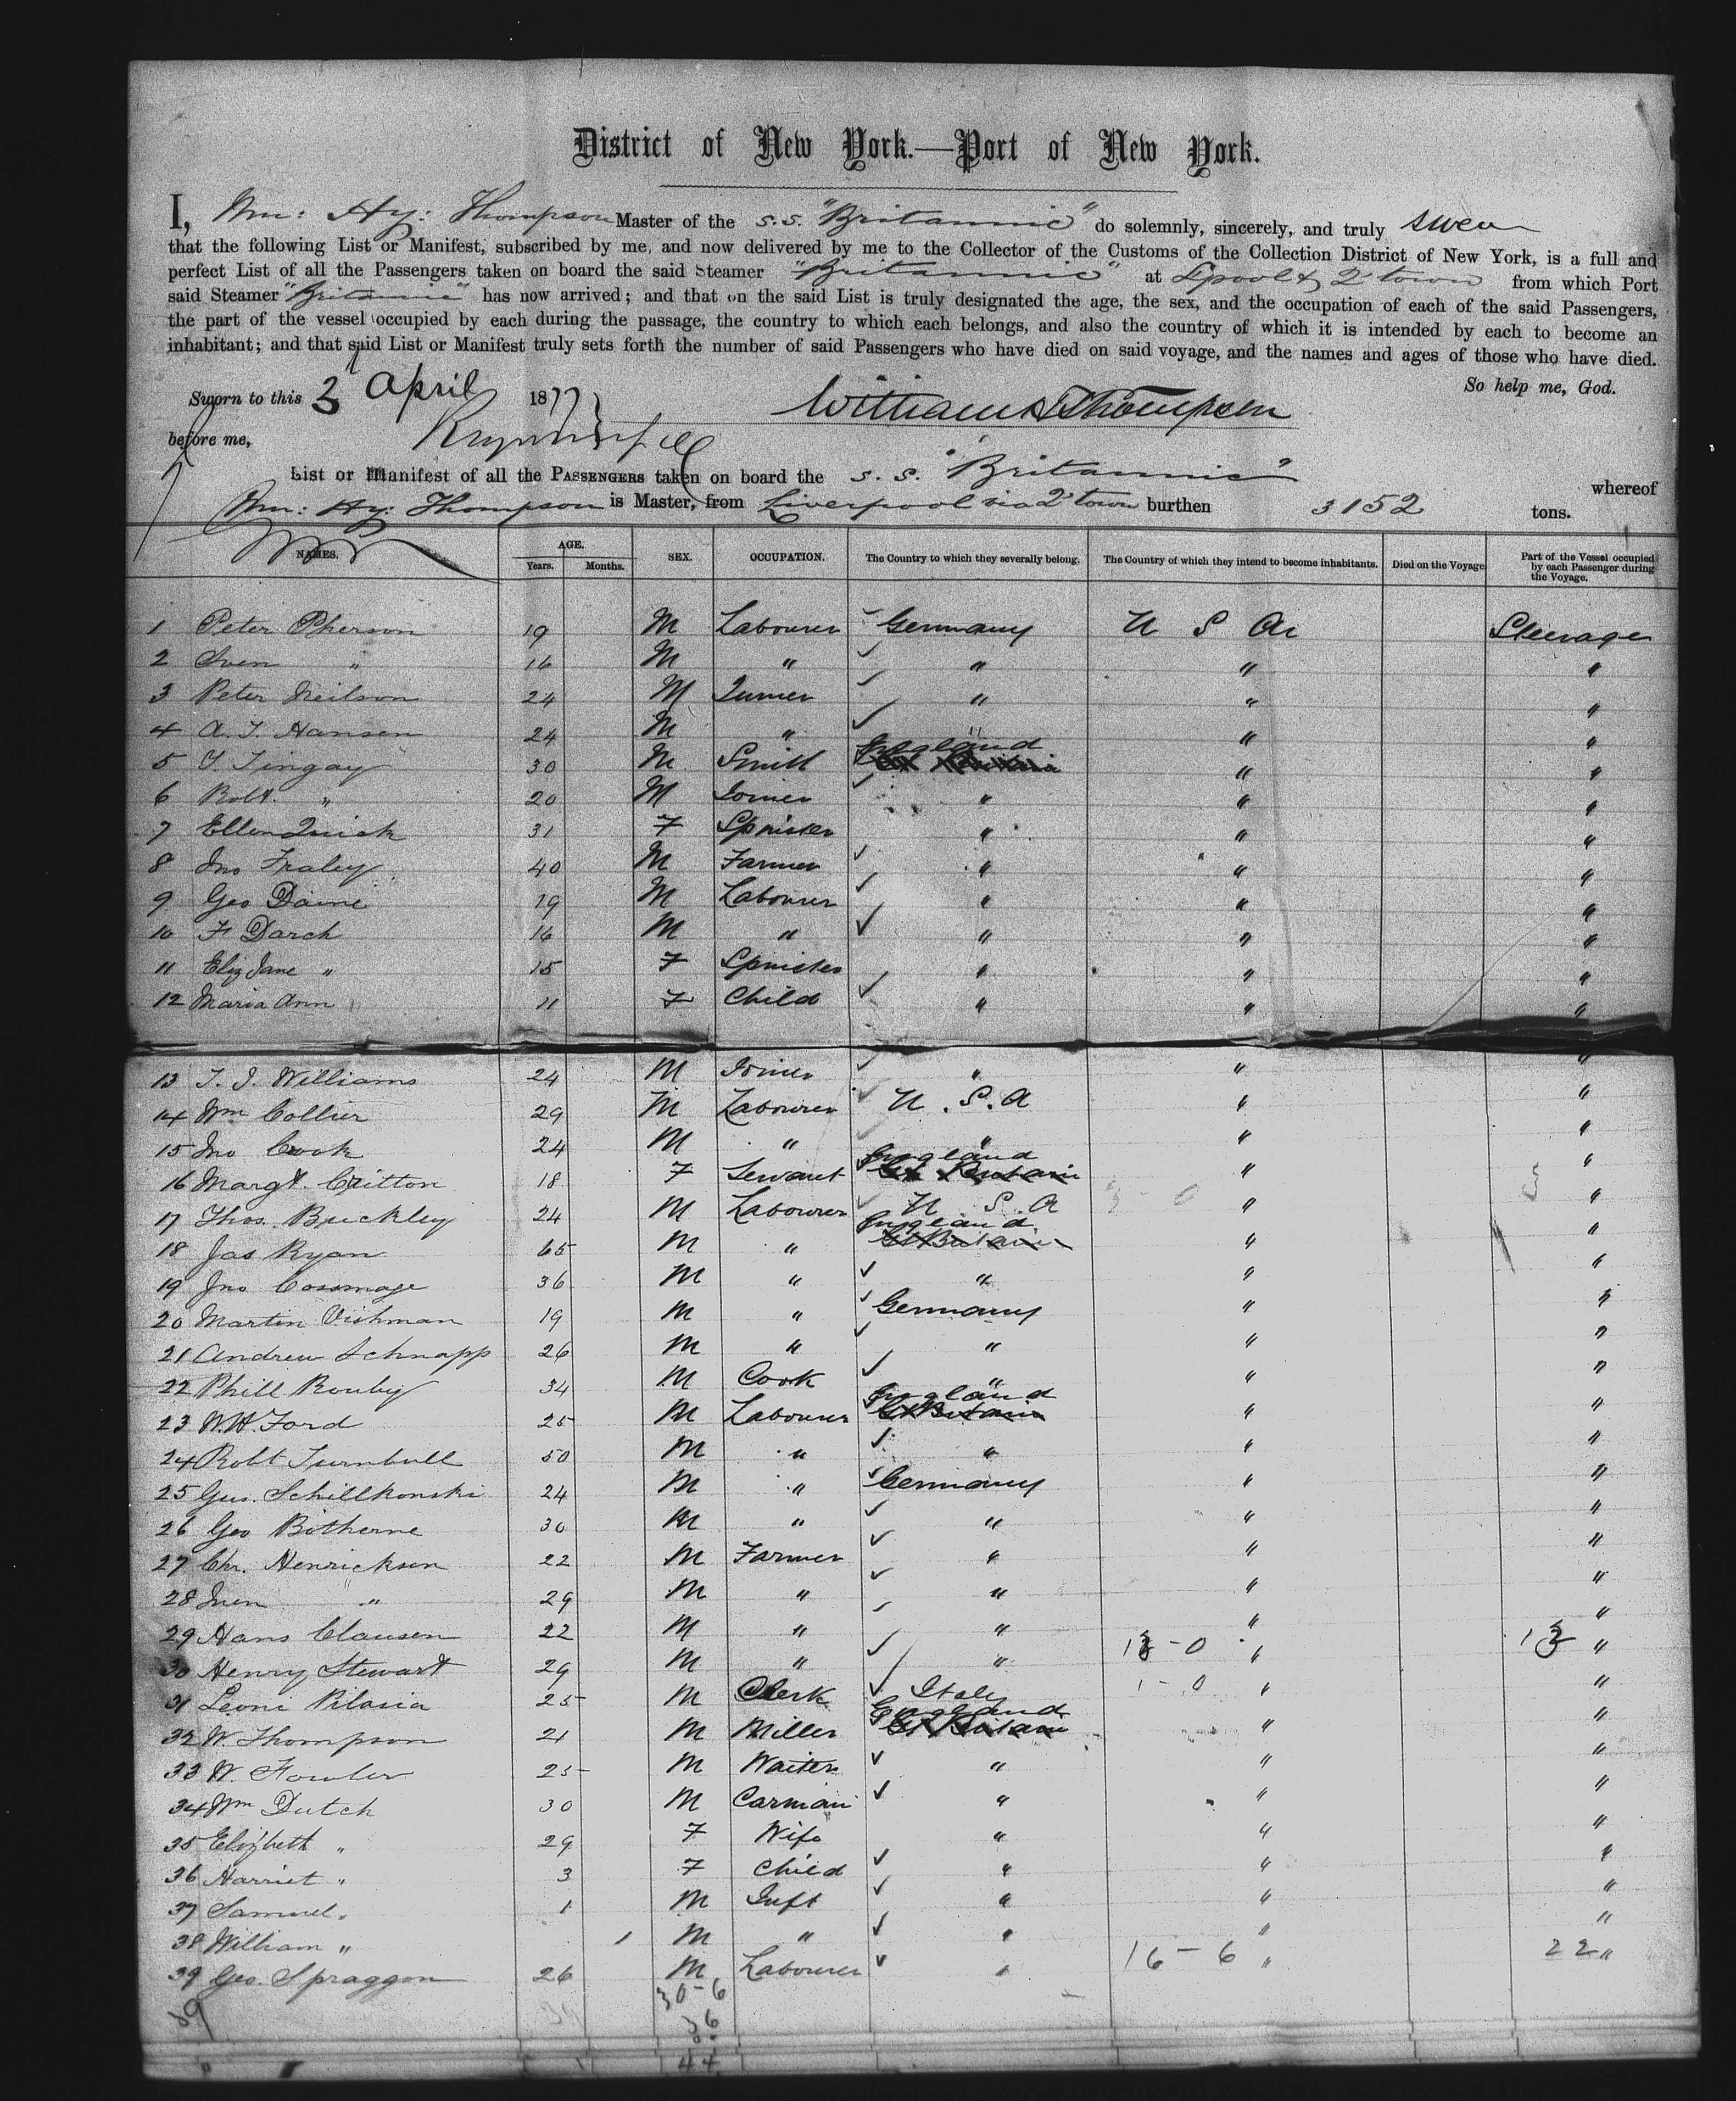 District of New York.—Port of New York.
I, Wm: Hy: Thompson Master of the s.s. "Britannic" do solemnly, sincerely, and truly swear
that the following List or Manifest, subscribed by me, and now delivered by me to the Collector of the Customs of the Collection District of New York, is a full and
perfect List of all the Passengers taken on board the said Steamer "Britannic" at Lpool & Q'town from which Port
said Steamer "Britannic" has now arrived; and that on the said List is truly designated the age, the sex, and the occupation of each of the said Passengers,
the part of the vessel occupied by each during the passage, the country to which each belongs, and also the country of which it is intended by each to become an
inhabitant; and that said List or Manifest truly sets forth the number of said Passengers who have died on said voyage, and the names and ages of those who have died.
So help me, God.
Sworn to this 3 April 1877 William H Thompson
before me,
List or Manifest of all the PASSENGERS taken on board the s.s. "Britannic" whereof
Wm: Hy: Thompson is Master, from Liverpool via Q'town burthen 3152 tons.
NAMES. AGE. Years. Months. SEX. OCCUPATION. The Country to which they severally belong. The Country of which they intend to become inhabitants. Died on the Voyage. Part of the Vessel occupied by each Passenger during the Voyage.
1 Peter Pherson 19 M Labourer Germany U S A Steerage
2 Sven " 16 M " " " "
3 Peter Neilson 24 M Turner " " "
4 A. T. Hansen 24 M " " " "
5 T. Tingay 30 M Smith England " "
6 Robt. " 20 M Joiner " " "
7 Ellen Quick 31 F Spinster " " "
8 Jno Fraley 40 M Farmer " " "
9 Geo Daine 19 M Labourer " " "
10 F Darch 16 M " " " "
11 Eliz Jane " 15 F Spinster " " "
12 Maria Ann 11 F Child " " "
13 T. J. Williams 24 M Joiner " " "
14 Wm Collier 29 M Labourer U.S.A " "
15 Jno Cook 24 M " " " "
16 Margt. Critton 18 F Servant England " "
17 Thos. Buckley 24 M Labourer U S A " "
18 Jas Ryan 65 M " England " "
19 Jno Cossmage 36 M " " " "
20 Martin Vichman 19 M " Germany " "
21 Andrew Schnapp 26 M " " " "
22 Phill Rouby 34 M Cook " " "
23 W.H. Ford 25 M Labourer England " "
24 Robt Turnbull 50 M " " " "
25 Gus. Schillkonski 24 M " Germany " "
26 Geo Botherne 30 M " " " "
27 Chr. Henricksen 22 M Farmer " " "
28 " 29 M " " " "
29 Hans Clausen 22 M " " " "
30 Henry Stewart 29 M " " 13 - 0 " 13 "
31 Leoni Pilaria 25 M Clerk Italy 1 - 0 " "
32 W. Thompson 21 M Miller England " "
33 W. Fowler 25 M Waiter " " "
34 Wm Dutch 30 M Carman " " "
35 Elizbeth " 29 F Wife " " "
36 Harriet " 3 F Child " " "
37 Samuel " 1 M Inft " " "
38 William " 1 M " " " "
39 Geo. Spraggon 26 M Labourer " 16 - 6 " 22 "
39 30-6
36
44